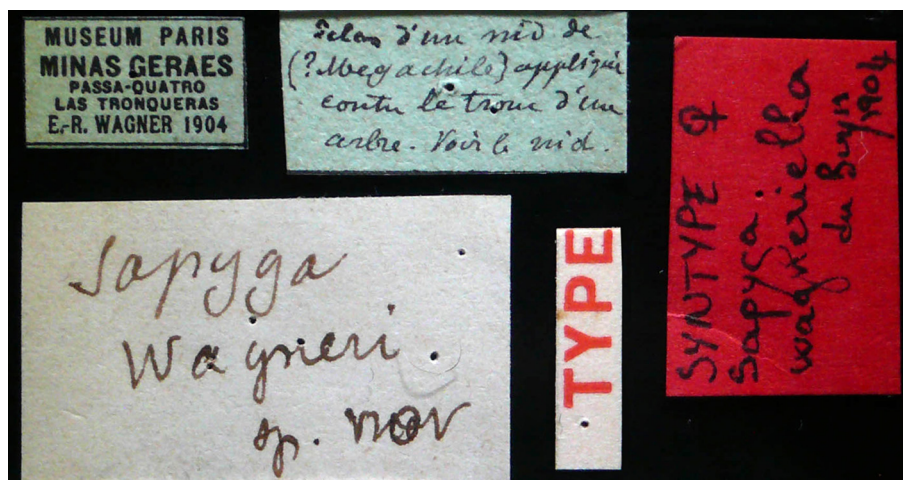 MUSEUM PARIS
MINAS GERAES
PASSA-QUATRO
LAS TRONQUERAS
E.-R. WAGNER 1904
d'un nid de
(?Megachile) appliqué
contre le tronc d'un
arbre. Voir le nid.
Sapyga
Wagneri
sp. nov
TYPE
SYNTYPE ♀
Sapyga
wagneriella
du Buyss
1904